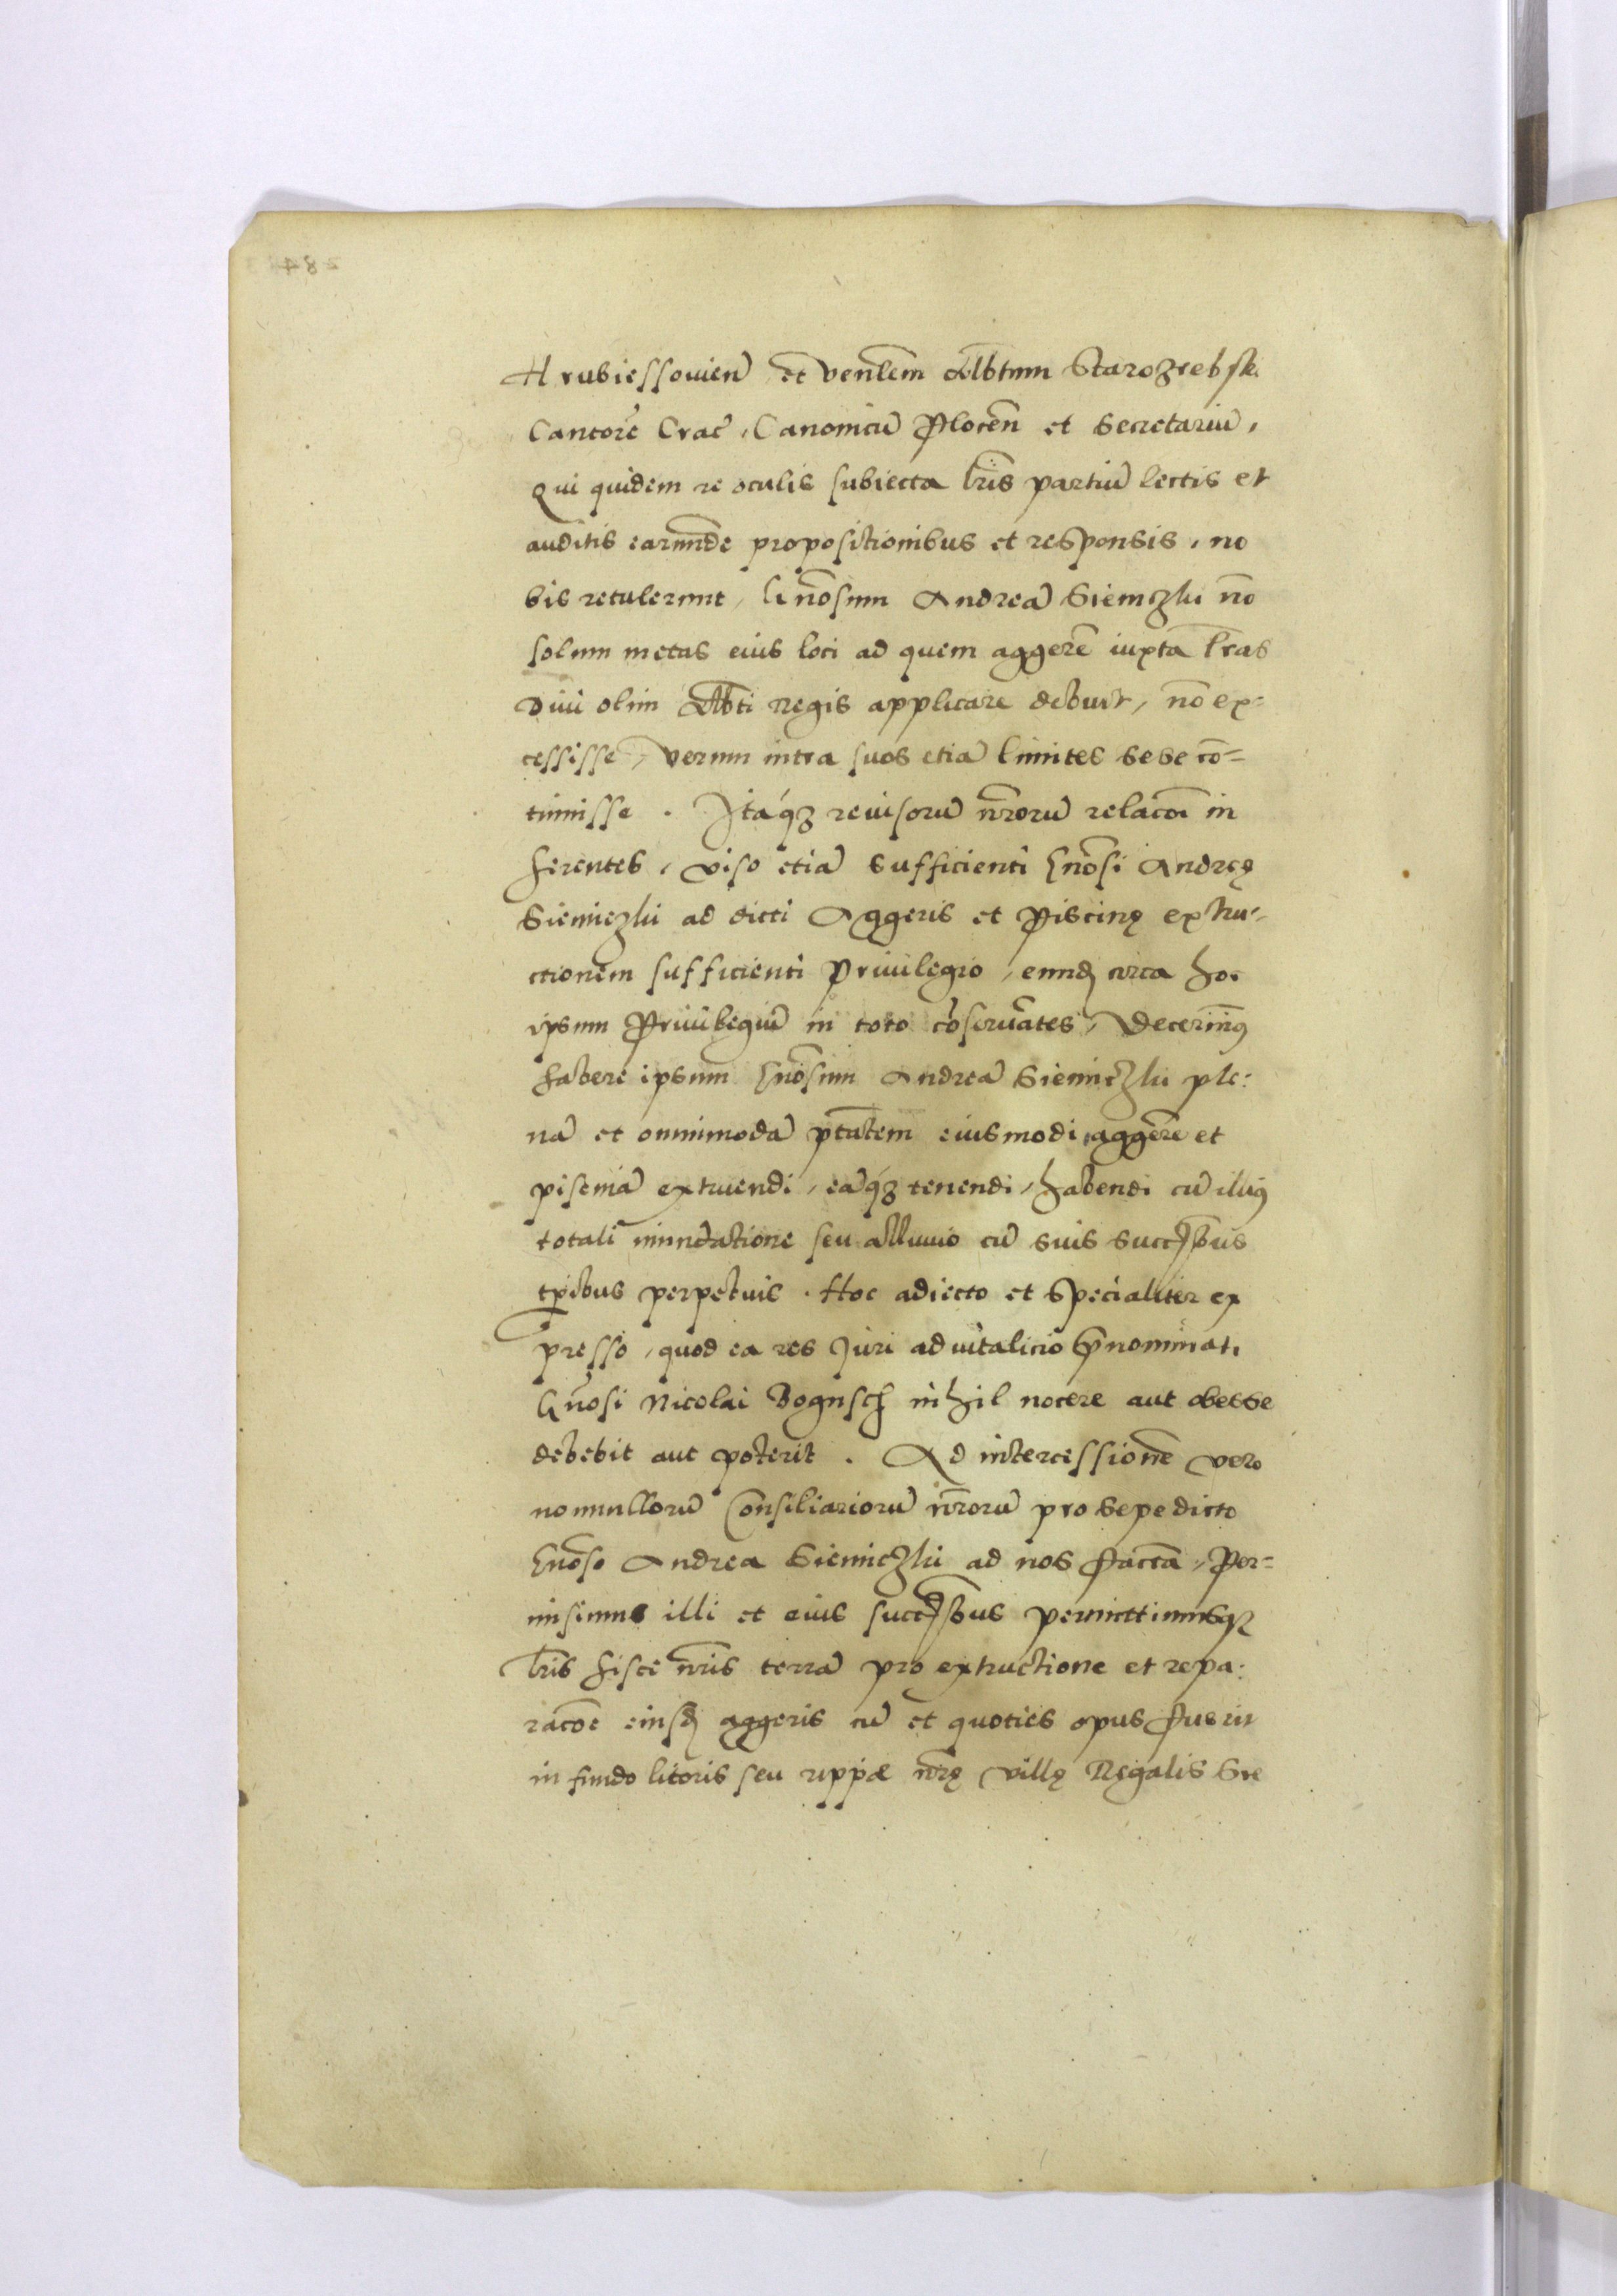 Hrubiessouien̄ et venlēm Albtum Starozrebsk
Cantorē Crac̄, Canonicū Plocēn et Secretariū,
qui quidem re oculis subiecta lr̄is partiū lectis et
auditis earundē propositionibus et responsis, no
bis retulerunt, Gn̄osum Andreā Siemiczki nō
solum metas eius loci ad quem aggerē iuxta lr̄as
Diui olim Albti Regis applicare debuit, nō ex-
cessisse, verum intra suos etiā limites sese cō-
tinuisse. Itaq̄ȝ reuisorū nr̄orū relacōi in
herentes, viso etiā sufficienti Gn̄osi Andreę
Siemiczki ad dicti Aggeris et Piscinę extru-
ctionem sufficienti Priuilegio, eundē circa hoc
ipsum Priuilegiū in toto cōseruātes, Decernimꝰ
habere ipsum Gn̄osum Andreā Siemiczki ple-
nā et omnimodā ptātem eiusmodi aggerē et
piscinā extruendi, eāq̄ȝ tenendi, habendi cū illiꝰ
totali inundatione seu alluuio cū suis succēssbus
tp̄ibus perpetuis. Hoc adiecto et specialiter ex
presso, quod ea res Juri aduitalicio p̄nominati
Gn̄osi Nicolai Bogusch nihil nocere aut obesse
debebit aut poterit. Ad intercessionē vero
nonnullorū Consiliariorū nr̄orū pro sepe dicto
Gn̄oso Andrea Siemiczki ad nos factā, Per-
misimus illi et eius succēssbus permittimusqȝ
lr̄is hisce nr̄is terrā pro extructione et repa-
racōe eiusdē aggeris cū et quoties opus fuerit
in fundo litoris seu rippæ nr̄ę villę Regalis Sre